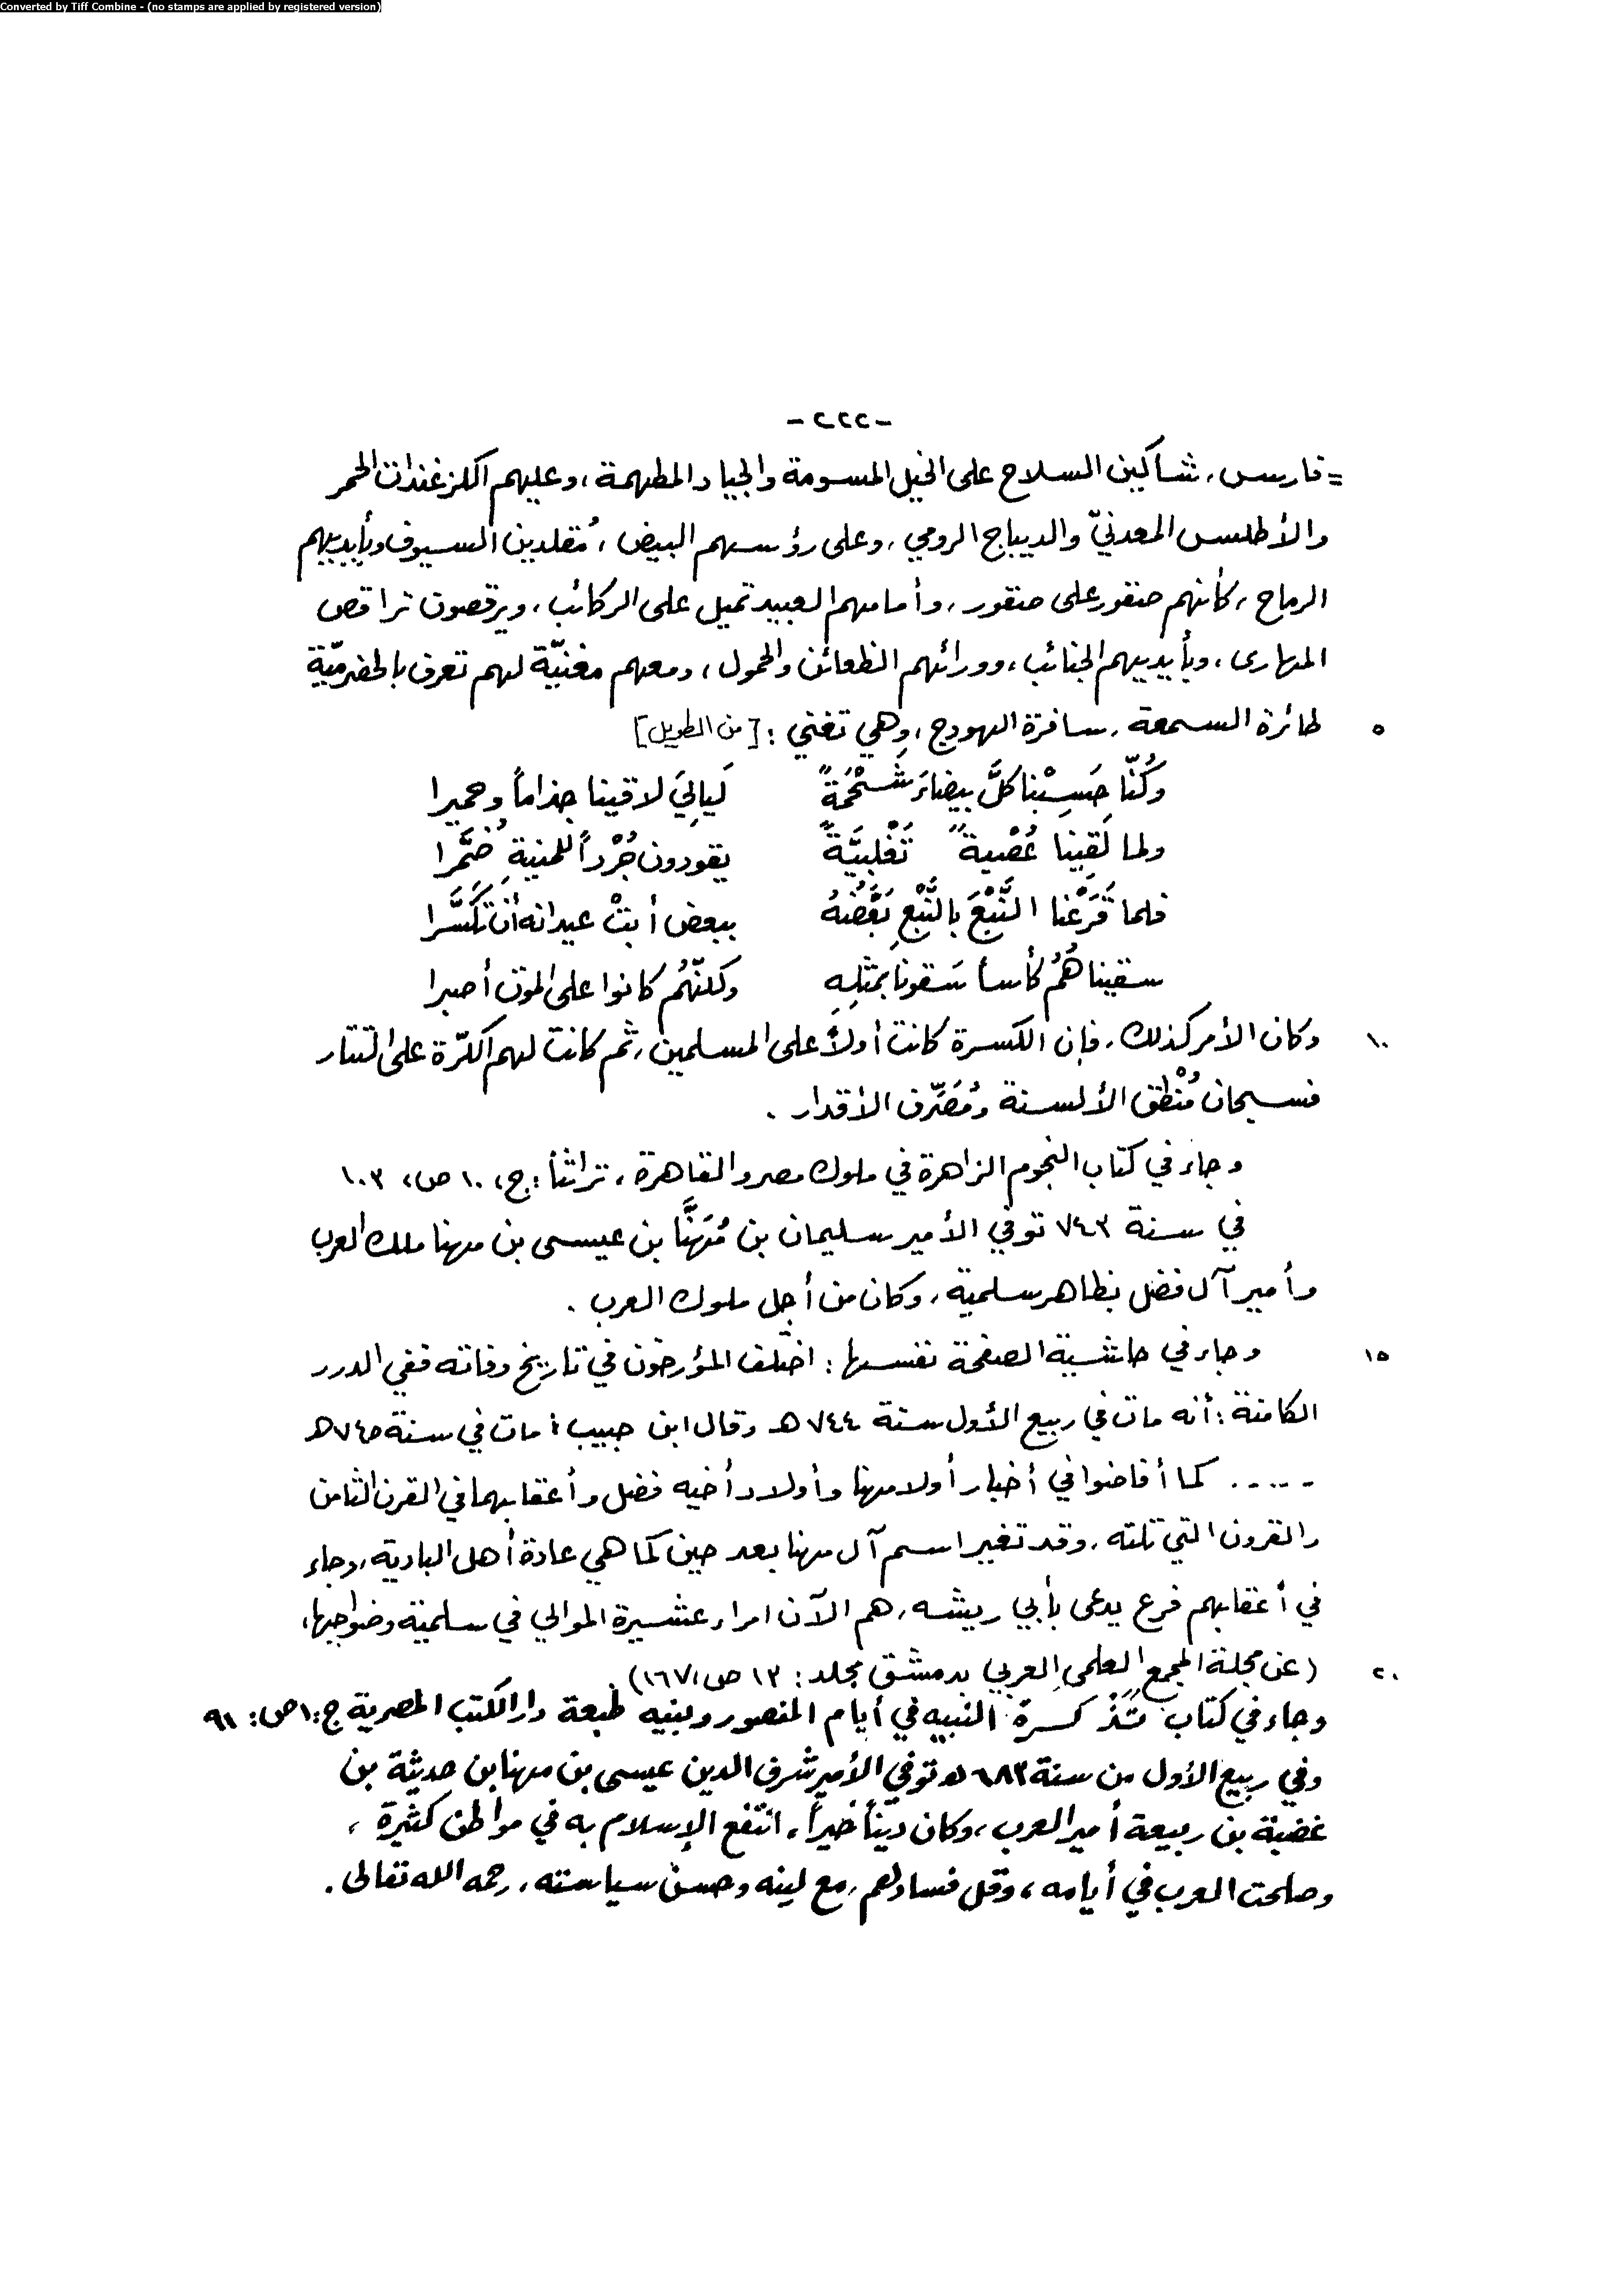 Converted by Tiff Combine - (no stamps are applied by registered version)
- ٢٢٢ -
= فارس، شاكين السلاح على الخيل المسومة والجياد المطهمة، وعليهم الكزغندات الحمر
والأطلس المعدنيّ والديباج الرومي، وعلى رؤسهم البيض، مُقلدين السيوف وبأيديهم
الرماح، كأنهم صقور على صقور، وأمامهم العبيد تميل على الركائب، ويرقصون تراقص
المهارى، وبأيديهم الجنائب، وورائهم الظعائن والحمول، ومعهم مغنيّة لهم تعرف بالحضرميّة
٥ طائرة السمعة، سافرة الهودج، وهي تغني: [من الطويل]
وَكُنّا حَسِبْنا كلَّ بيضاءَ شَحْمَةً لَيالِيَ لاقينا جذاماً وحميرا
ولما لَقِينا عُصْبةً تَغْلِبيَّةً يقودون جُرْداً للمنيةِ ضُمَّرا
فلما قَرَعْنا النَّبْعَ بالنَّبْعِ بَعْضَهُ ببعض أبتْ عيدانه أنْ تَكَسَّرا
سقيناهُمُ كأسأ سَقونا بمثلِهِ وكلنّهُم كانوا على الموت أصبرا
١٠ وكان الأمر كذلك، فإن الكسرة كانت أولاً على المسلمين، ثم كانت لهم الكرّة على التتار
فسبحان مُنْطق الألسنة ومُصَرِّف الأقدار .
وجاء في كتاب النجوم الزاهرة في ملوك مصر والقاهرة، تراثنأ: ج، ١٠ ص، ١٠٣
في سنة ٧٤٣ توفي الأمير سليمان بن مُهَنَّا بن عيسى بن مهنا ملك العرب
وأمير آل فضل بظاهر سلمية، وكان من أجل ملوك العرب .
١٥ وجاء في حاشية الصفحة نفسها: اختلف المؤرخون في تاريخ وفاته ففي الدرر
الكامنة: أنه مات في ربيع الأول سنة ٧٤٤ هـ وقال ابن حبيب: مات في سنة ٧٤٥ هـ
..... كما أفاضوا في أخبار أولاد مهنا وأولاد أخيه فضل وأعقابهما في القرن الثامن
والقرون التي تلته، وقد تغير اسم آل مهنا بعد حين كما هي عادة أهل البادية، وجاء
في أعقابهم فرع يدعى بأبي ريشه، هم الآن امراء عشيرة الموالي في سلمية وضواحيها،
٢٠ (عن مجلة المجمع العلمي العربي بدمشق مجلد: ١٣ ص، ١٦٧)
وجاء في كتاب تَذْكرة النبيه في أيام المنصور وبنيه طبعة دار الكتب المصرية ج: ١ ص: ٩١
وفي ربيع الأول من سنة ٦٨٣ هـ توفي الأمير شرف الدين عيسى بن مهنا بن حديثة بن
غضبة بن ربيعة أمير العرب، وكان ديّناً خيراً، انتفع الإسلام به في مواطن كثيرة،
وصلحت العرب في أيامه، وقل فسادهم، مع لينه وحسن سياسته، رحمه الله تعالى .